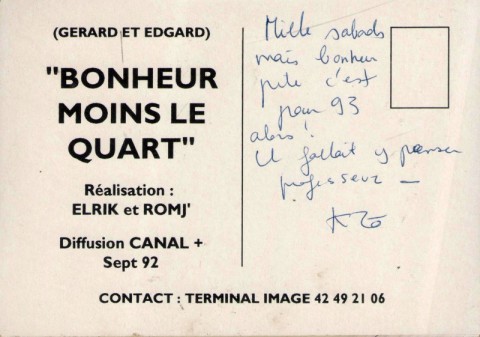 (GERARD ET EDGARD)
"BONHEUR
MOINS LE
QUART"
Réalisation :
ELRIK et ROMJ'
Diffusion CANAL +
Sept 92
Mille sabods
mais bonheur
pile c'est
pour 93
alors !
Il fallait y penser
professeur —
CONTACT : TERMINAL IMAGE 42 49 21 06